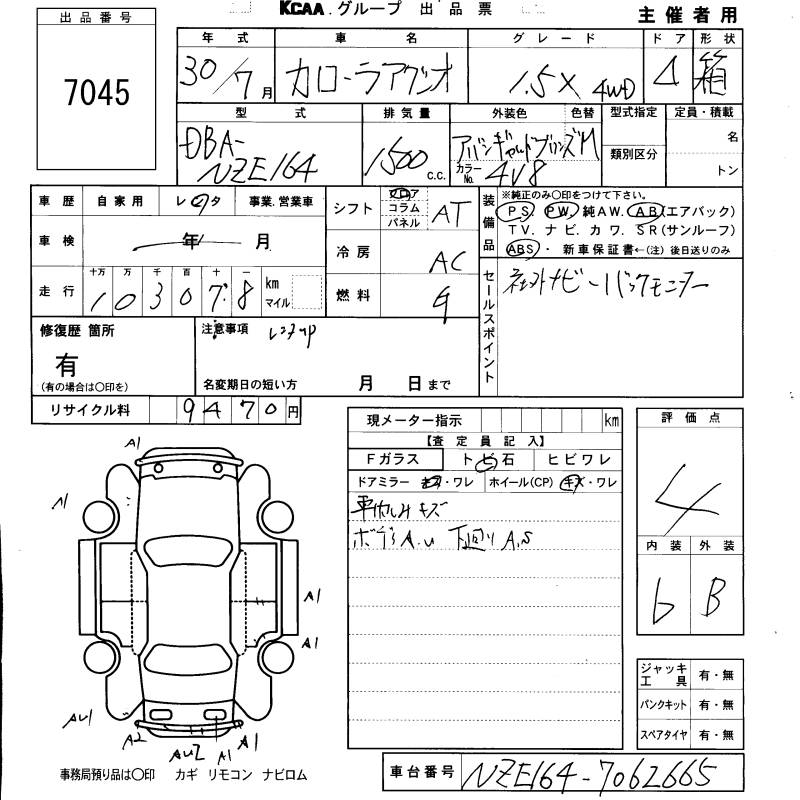 KCAA.グループ 出品票
主催者用
出品番号
7045
年式 車名 グレード ドア 形状
30/7月 カローラアクシオ 1.5X 4WD 4 箱
型式 排気量 外装色 色替 型式指定 定員・積載
DBA-NZE164 1500 c.c. カラーNo. 4V8 類別区分 名
トン
車歴 自家用 レンタ 事業・営業車
シフト フロア コラム パネル AT
装備品 ※純正のみ〇印をつけて下さい。
PS. PW. 純AW. AB(エアバック)
TV. ナビ. カワ. SR(サンルーフ)
ABS・新車保証書←(注) 後日送りのみ
車検 年 月
冷房 AC
走行 十万 万 千 百 十 一
103078 km マイル
燃料 G
セールスポイント 社外ナビ バックモニター
修復歴 箇所 有
(有の場合は〇印を)
注意事項 レンタup
名変期日の短い方 月 日まで
リサイクル料 9470円
現メーター指示 km
【査定員記入】
Fガラス トビ石 ヒビワレ
ドアミラー キズ・ワレ ホイール(CP) キズ・ワレ
キズ
ボデーA.U 下廻りA.S
評価点
4
内装 外装
6 B
ジャッキ工具 有・無
パンクキット 有・無
スペアタイヤ 有・無
A1
A1
A1
A1
AU1
A2
AU2
A1
A1
事務局預り品は〇印 カギ リモコン ナビロム
車台番号 NZE164-7062665